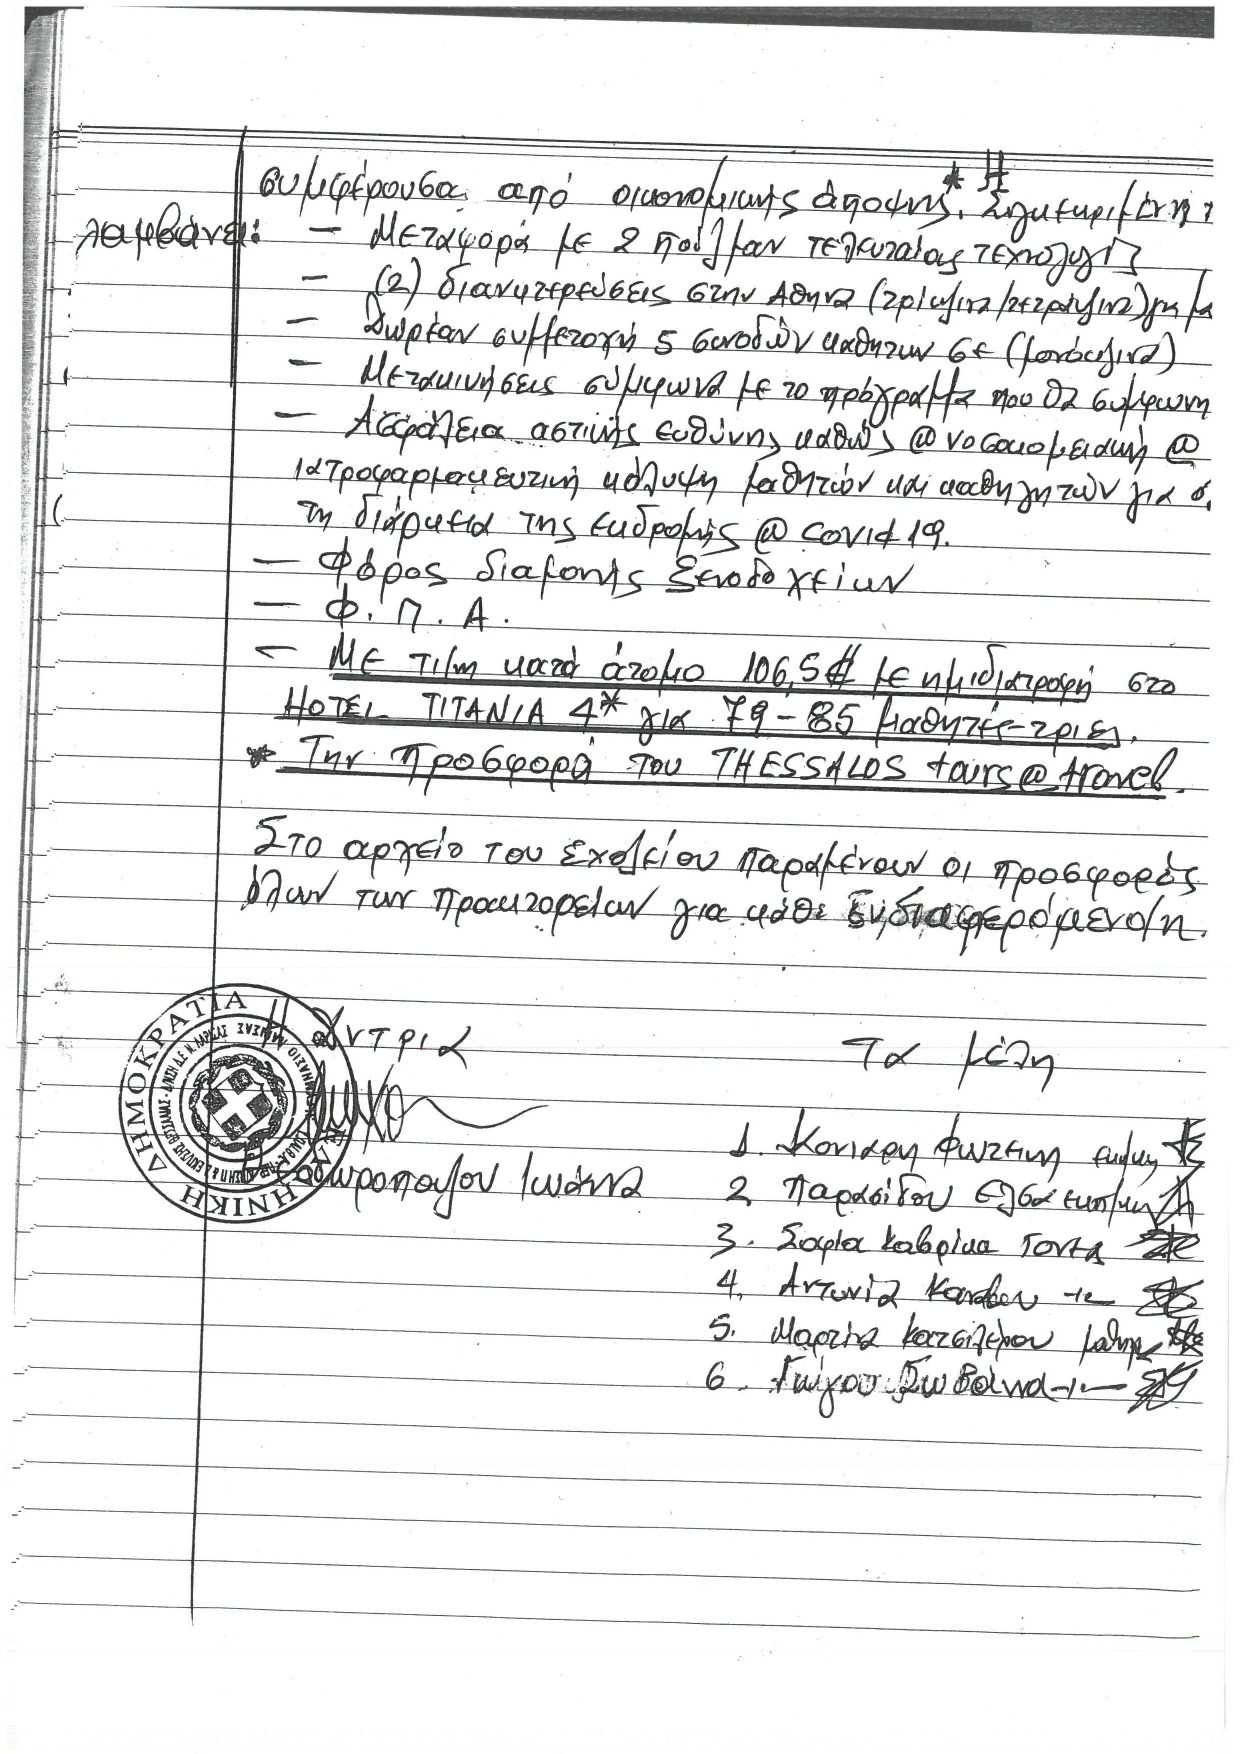 συμφέρουσα από οικονομικής άποψης.* Η
λαμβάνει: – Μεταφορά με 2 πούλμαν τελευταίας τεχνολογίας
– (2) διανυκτερεύσεις στην Αθήνα (τρίκλινα/τετράκλινα) για μα
– Δωρεάν συμμετοχή 5 συνοδών καθητων σε (μονόκλινα)
– Μετακινήσεις σύμφωνα με το πρόγραμμα που θα συμφωνη
– Ασφάλεια αστικής ευθύνης καθώς @ νοσοκομειακή @
ιατροφαρμακευτική κάλυψη μαθητών και καθηγητών για ό
τη διάρκεια της εκδρομής @ covid 19.
– Φόρος διαμονής ξενοδοχείων
– Φ. Π. Α.
– Με τιμή κατά άτομο 106,5€ με ημιδιατροφή στο
HOTEL TITANIA 4* για 79-85 μαθητές-τριες.
* Την προσφορά του THESSALOS tours @ travel.
Στο αρχείο του σχολείου παραμένουν οι προσφορές
όλων των πρακτορείων για κάθε ενδιαφερόμενο/η.
Η Δντρια Τα μέλη
ΕΛΛΗΝΙΚΗ ΔΗΜΟΚΡΑΤΙΑ
1. Κονιαρη Φωτεινη
Θεοδωροπούλου Ιωάννα 2 Παρασίδου Ελσα
3. Σοφία
4. Αντωνία
5. Μαρτίνα
6.